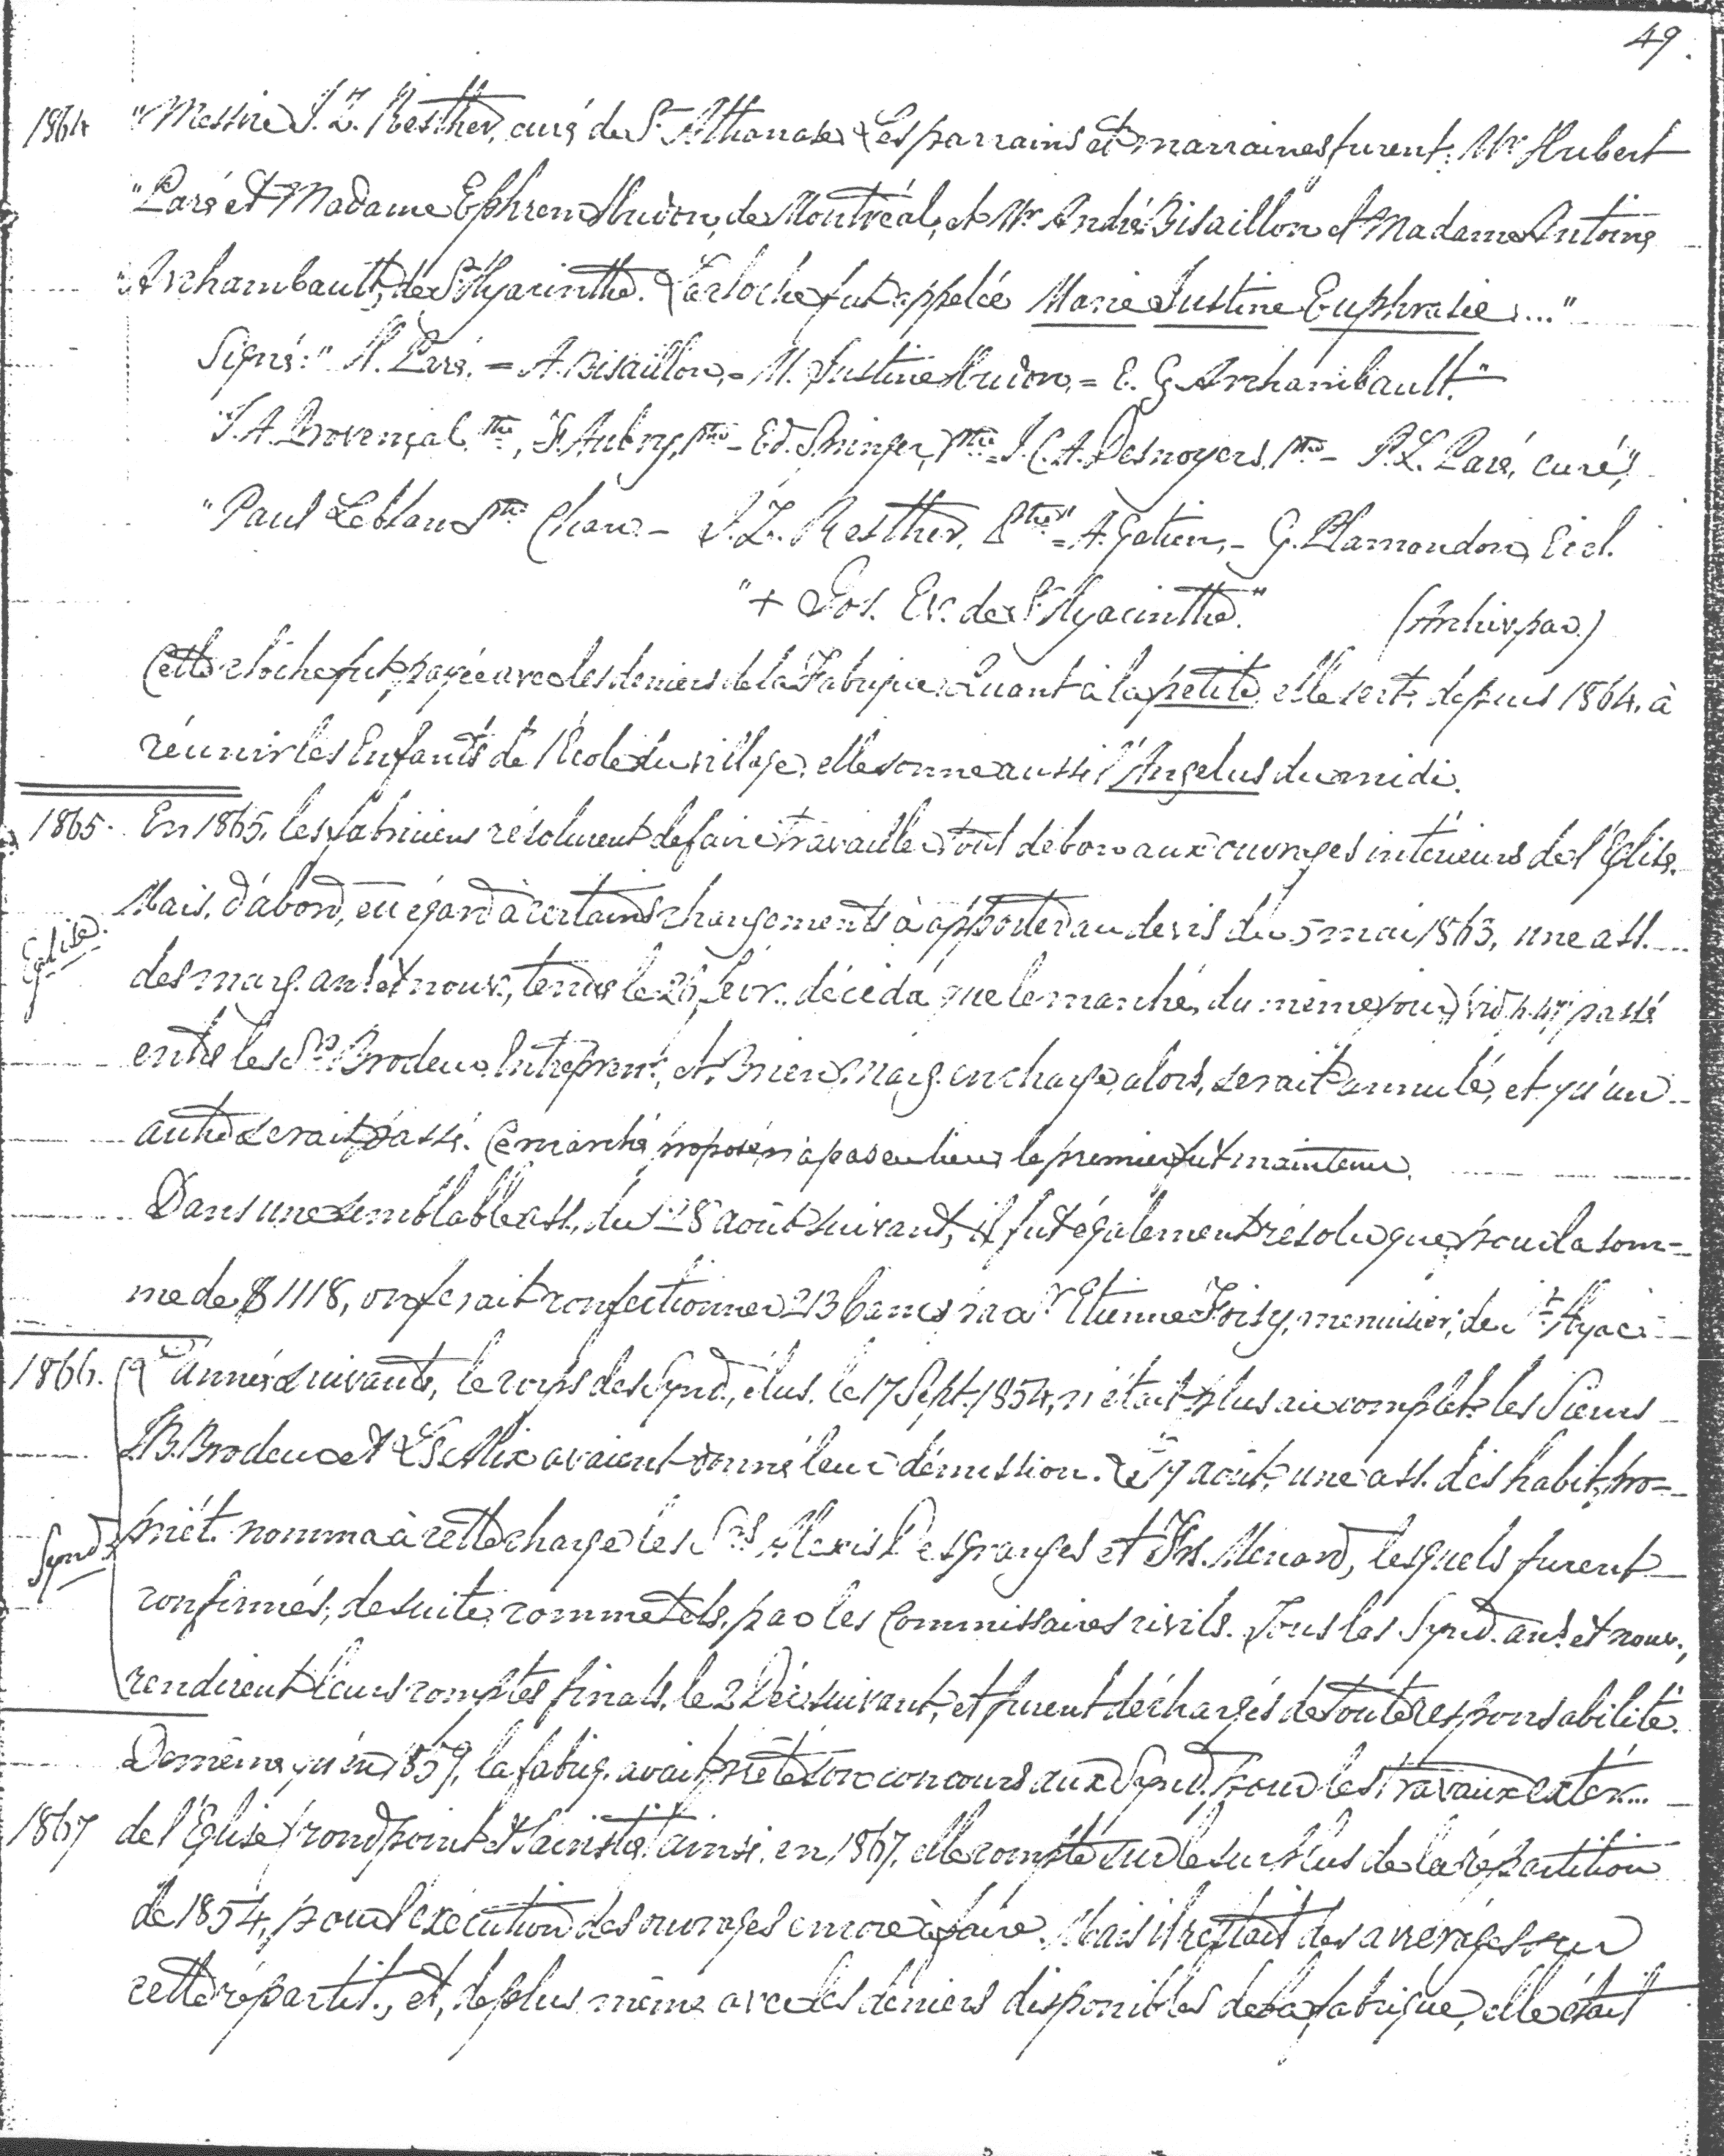 49.
1864 "Messire J. Z. Resther, curé de St Athanase. Les parrains et marraines furent: Mr Hubert
"Paré et Madame Ephrem Hudon, de Montréal, et Mr André Bisaillon et Madame Antoine
"Archambault, de St Hyacinthe. La cloche fut appelée Marie Justine Euphrasie...."
Signé: "H. Paré. = A. Bisaillon, = M. Justine Hudon, = E. G. Archambault."
"J. A. Provençal Ptre, F. Aubry, Ptre - Ed. Springer, Ptre = J. C. A. Desnoyers. Ptre - P. L. Paré, curé",
"Paul Leblanc Ptre Chan. - J. Z. Resther, Ptre" = A. Gatien, - G. Plamondon, Eccl.
"+ Jos. Ev. de St Hyacinthe." (Archiv. par.)
Cette cloche fut payée avec les deniers de la Fabrique. Quant à la petite, elle sert, depuis 1864, à
réunir les Enfants de l'Ecole du village; elle sonne aussi l'Angelus du midi.
1865. En 1865, les fabriciens résolurent de faire travailler tout de bon aux ouvrages intérieurs de l'Eglise.
Eglise. Mais, d'abord, eu égard à certains changements à apporter au devis du 5 mai 1863, une ass.
des marg. anc. et nouv., tenue le 26 févr., décida que le marché, du même jour, (vid. p. 47) passé
entre les Srs Brodeur, Entrepren., et Brien, marg. en charge, alors, serait annulé, et qu'un
autre serait passé. Ce marché proposé n'a pas eu lieu; le premier fut maintenu.
Dans une semblable ass., du 28 août suivant, il fut également résolu que, pour la som-
me de $1118, on ferait confectionner 213 bancs par Etienne Foisy, menuisier, de St Hyaci-
1866. L'année suivante, le corps des Synd., élus, le 17 Sept. 1854, n'était plus au complet: les Sieurs
J. B. Brodeur et Ls Alix avaient donné leur démission. Le 17 août, une ass. des habit. pro-
Synd. priét. nomma à cette charge les Srs Alexis Desgranges et Frs. Menard, lesquels furent
confirmés, de suite, comme tels, par les Commissaires civils. Tous les Synd. anc. et nouv.,
rendirent leurs comptes finals, le 2 Déc. suivant, et furent déchargés de toute responsabilité.
De même qu'en 1859, la fabriq. avait prêté son concours aux Synd. pour les travaux extér...
1867 de l'Eglise, rond point et Sacristie, ainsi, en 1867, elle compte sur le surplus de la répartition
de 1854, pour l'exécution des ouvrages encore à faire. Mais il restait des arrérages sur
cette répartit., et, de plus, même avec les deniers disponibles de la fabrique, elle était